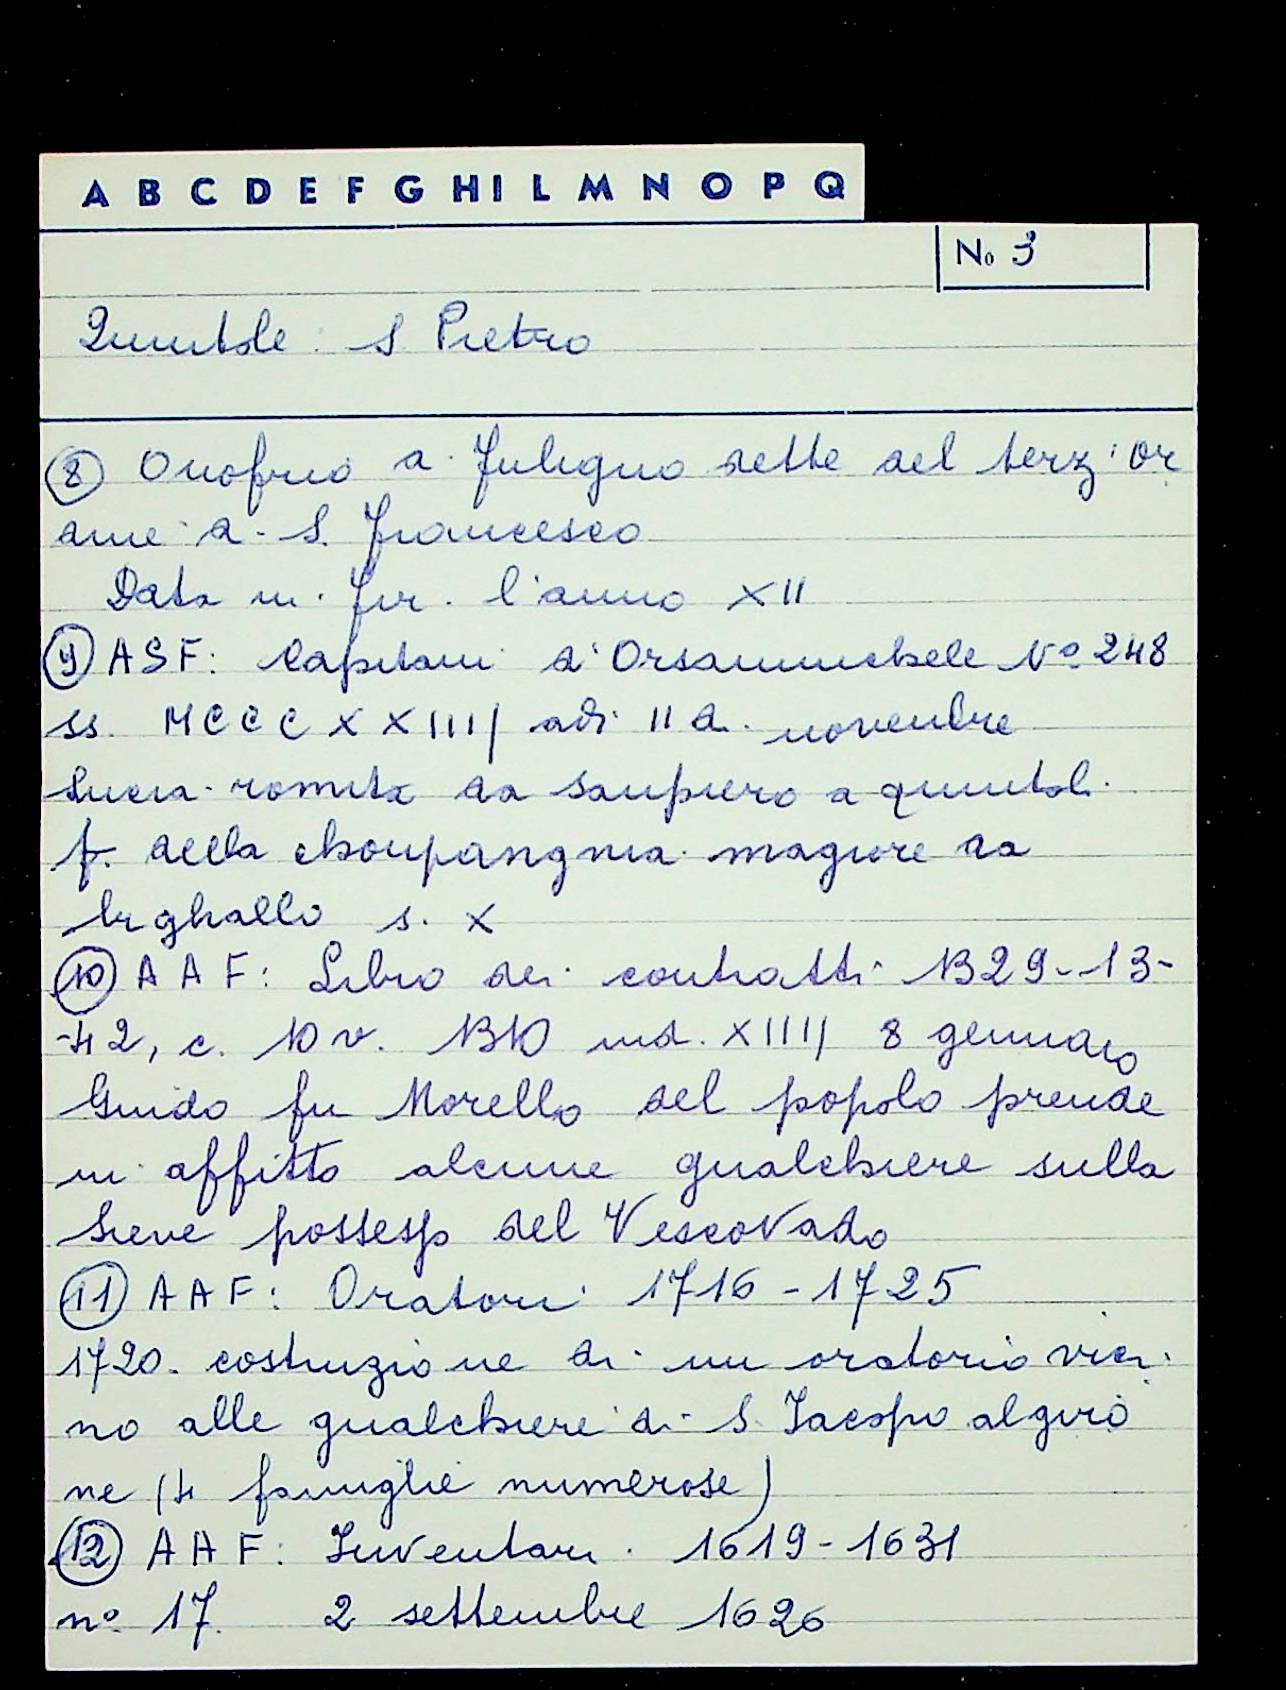 A B C D E F G H I L M N O P Q
No 3
Quintole : S Pietro
⑧ Onofrio di Fuligno dette del terzi or
dine di S. Francesco
Data in fir. l'anno XII
⑨ ASF: Capitani d'Orsanmichele No 248
ss. MCCCXXIII/ adi II di novenbre
Lucia romita da sanpiero a quintoli
f. della chonpangnia magiore da
brghallo s. X
⑩ AAF: Libro dei contratti 1329-13-
-42, c. 10 v. 1310 ind. XIIII/ 8 gennaio
Guido fu Morello del popolo prende
in affitto alcune gualchiere sulla
Sieve possesso del Vescovado
⑪ AAF: Oratori 1716-1725
1720. costruzione di un oratorio vici
no alle gualchiere di S Jacopo al giro
ne (4 famiglie numerose)
⑫ AAF: Inventari 1619-1631
no 17. 2 settembre 1626